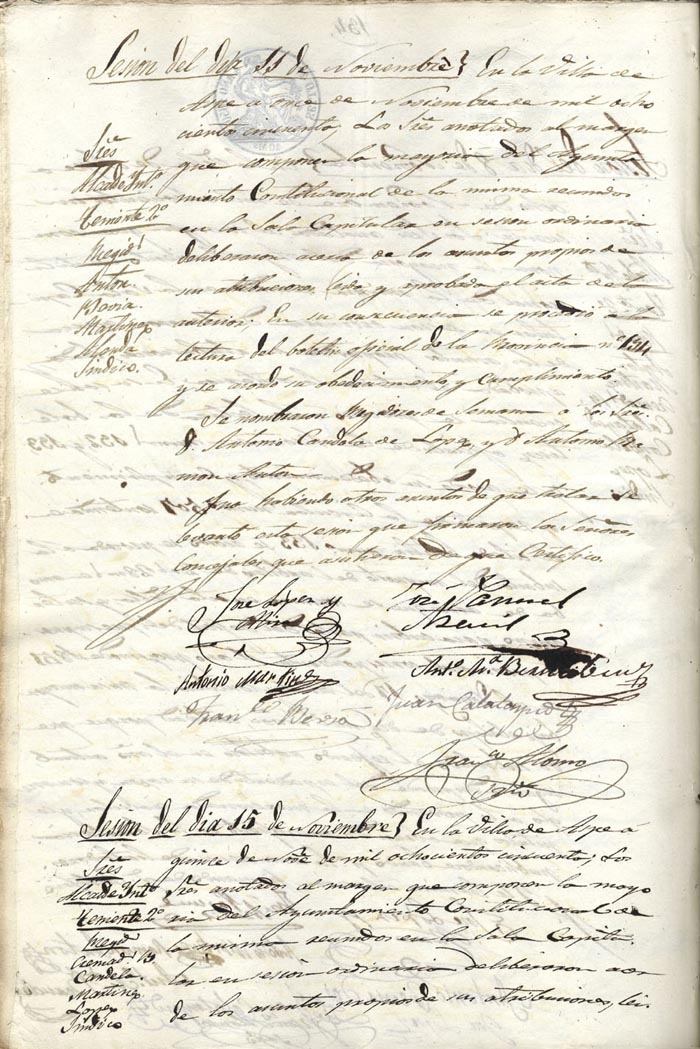 134
Sesion del dia 11 de Noviembre} En la Villa de
Aspe a once de Noviembre de mil ocho
cientos cincuenta, Los Sres anotados al margen
que componen la mayoria del Ayunta
miento Constitucional de la misma reunidos
en la Sala Capitular en sesion ordinaria
deliberaron acerca de los asuntos propios de
sus atribuciones, leida y aprobada el acta de la
anterior; En su consecuencia se procedió a la
lectura del boletin oficial de la Provincia nº 134
y se acordó su obedecimiento y cumplimiento.
Se nombraron Regidores de Semana a los Sres.
D. Antonio Candela de Lopez, y D. Antonio Ra
mon
Y no habiendo otros asuntos de que tratar se
levantó esta sesion que firmaron los Señores
Concejales que asistieron de que Certifico.
Sres
Alcalde Int.º
Teniente 2º
Regid.s
Anton
Martinez
Sindico.
Jose Lopez y
Manuel
Antonio Martinez
Anto. Ma.
Juan Calatayud
Sesion del dia 15 de Noviembre} En la Villa de Aspe a
quince de Novre de mil ochocientos cincuenta; Los
Sres anotados al margen que componen la mayo
ria del Ayuntamiento Constitucional de
la misma reunidos en la Sala Capitu
lar en sesion ordinaria deliberaron acer
de los asuntos propios de sus atribuciones, lei
Sres
Alcalde Int.º
Teniente 2º
Regid.s
Candela.
Martinez
Lopez
Sindico